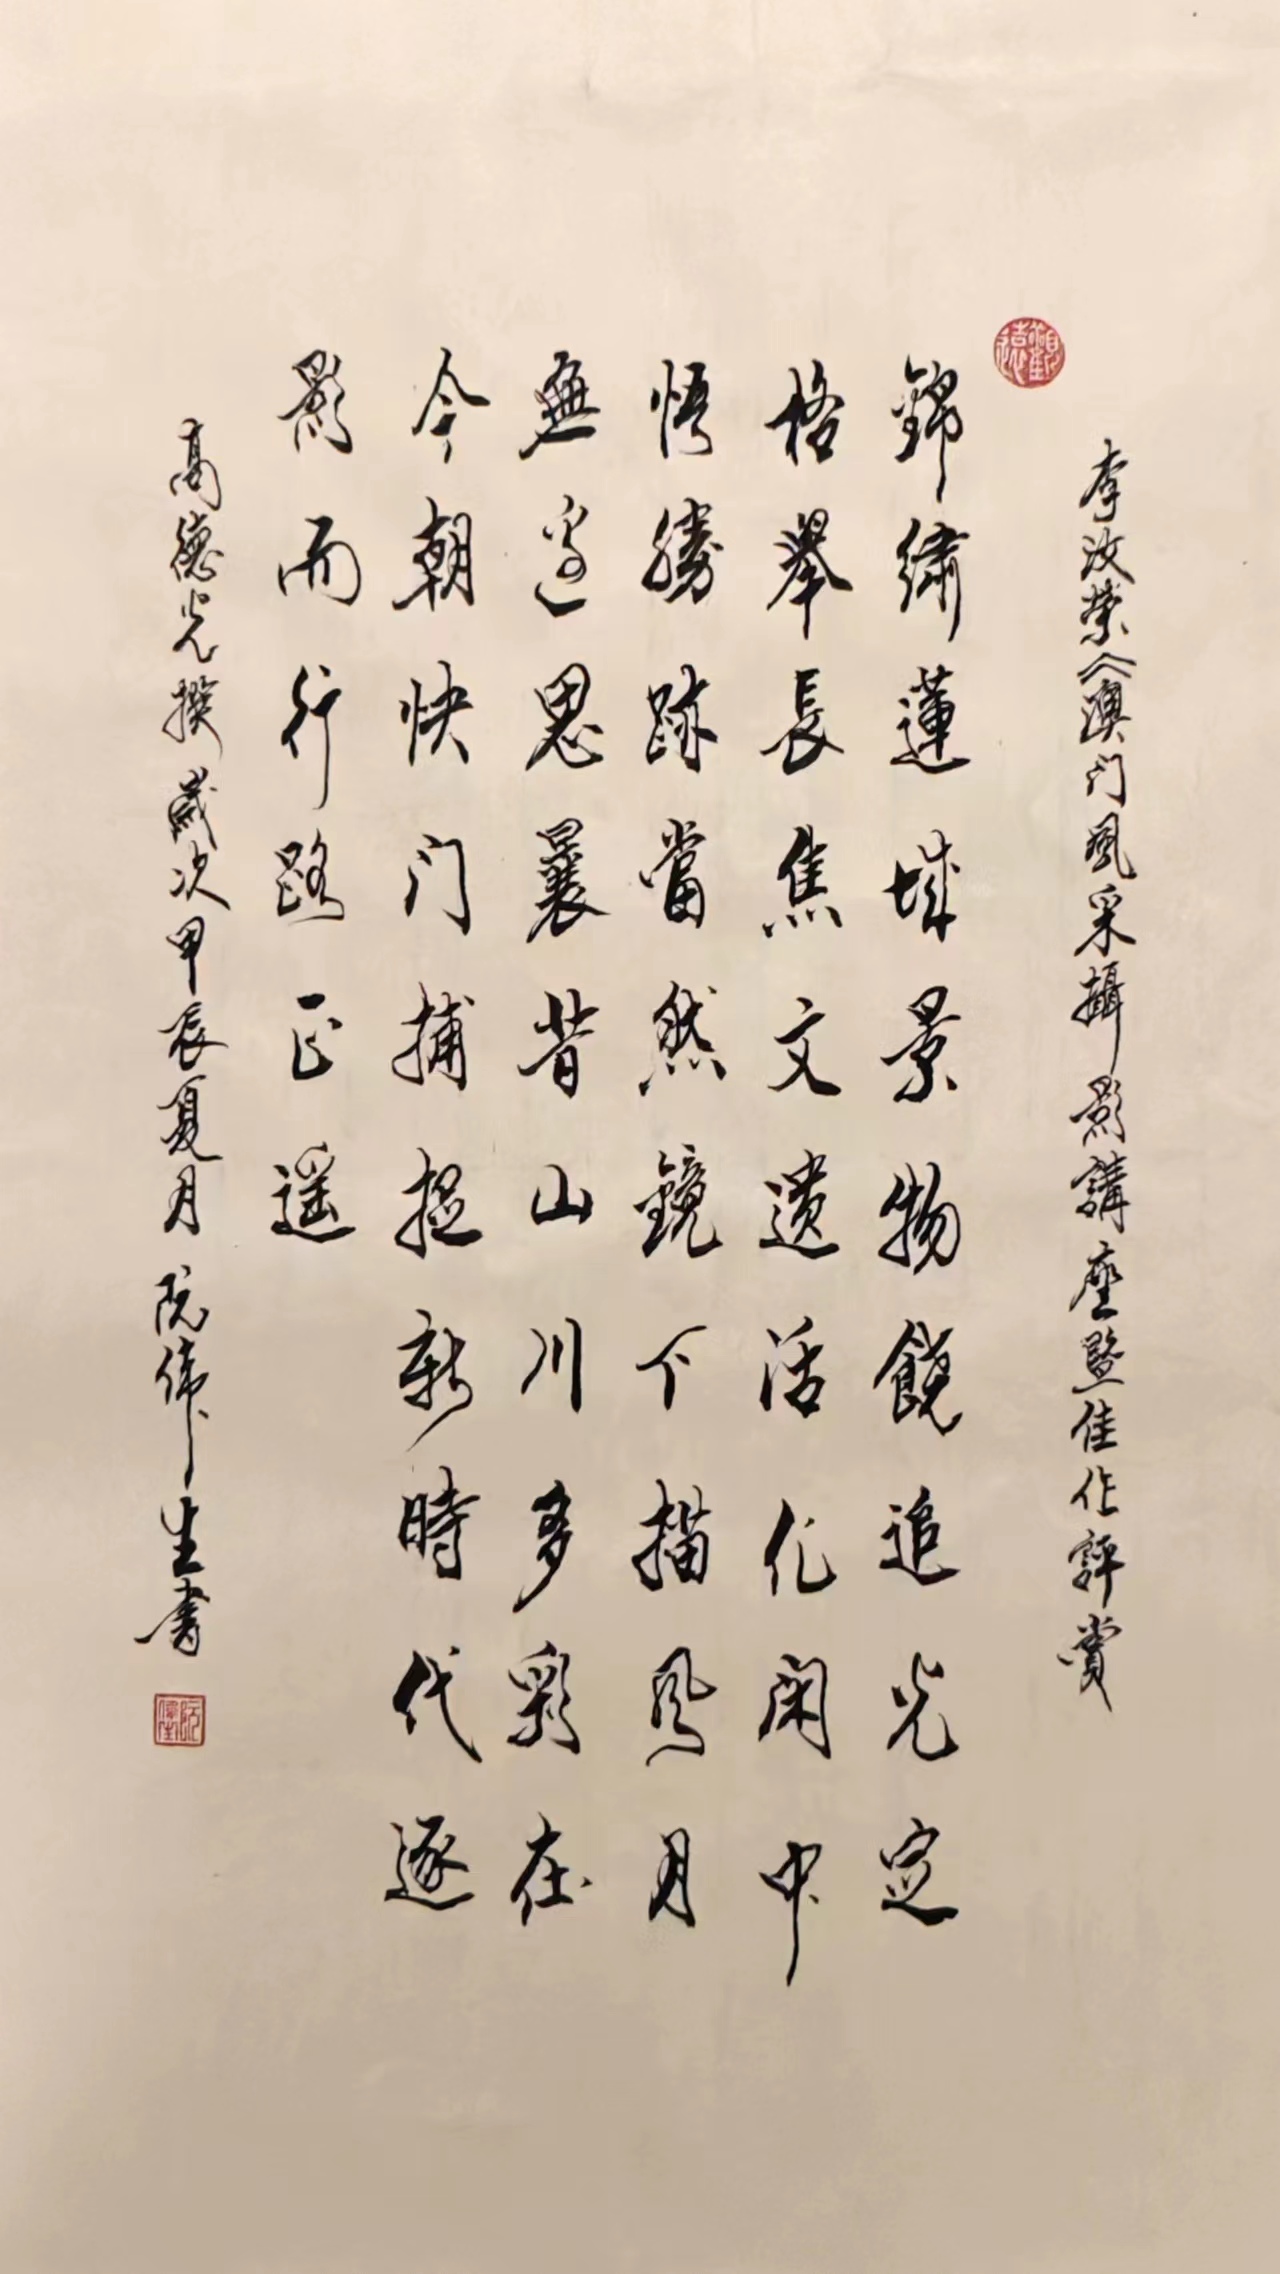 李汝榮《澳门風采攝影講座暨佳作評賞
錦繡蓮城景物饒追光定
格舉長焦文遗活化闲中
悟勝跡當然鏡下描风月
無邊思曩昔山川多彩在
今朝快门捕捉新時代逐
影而行路正遥
高德光撰歲次甲辰夏月阮偉生書
觀遠